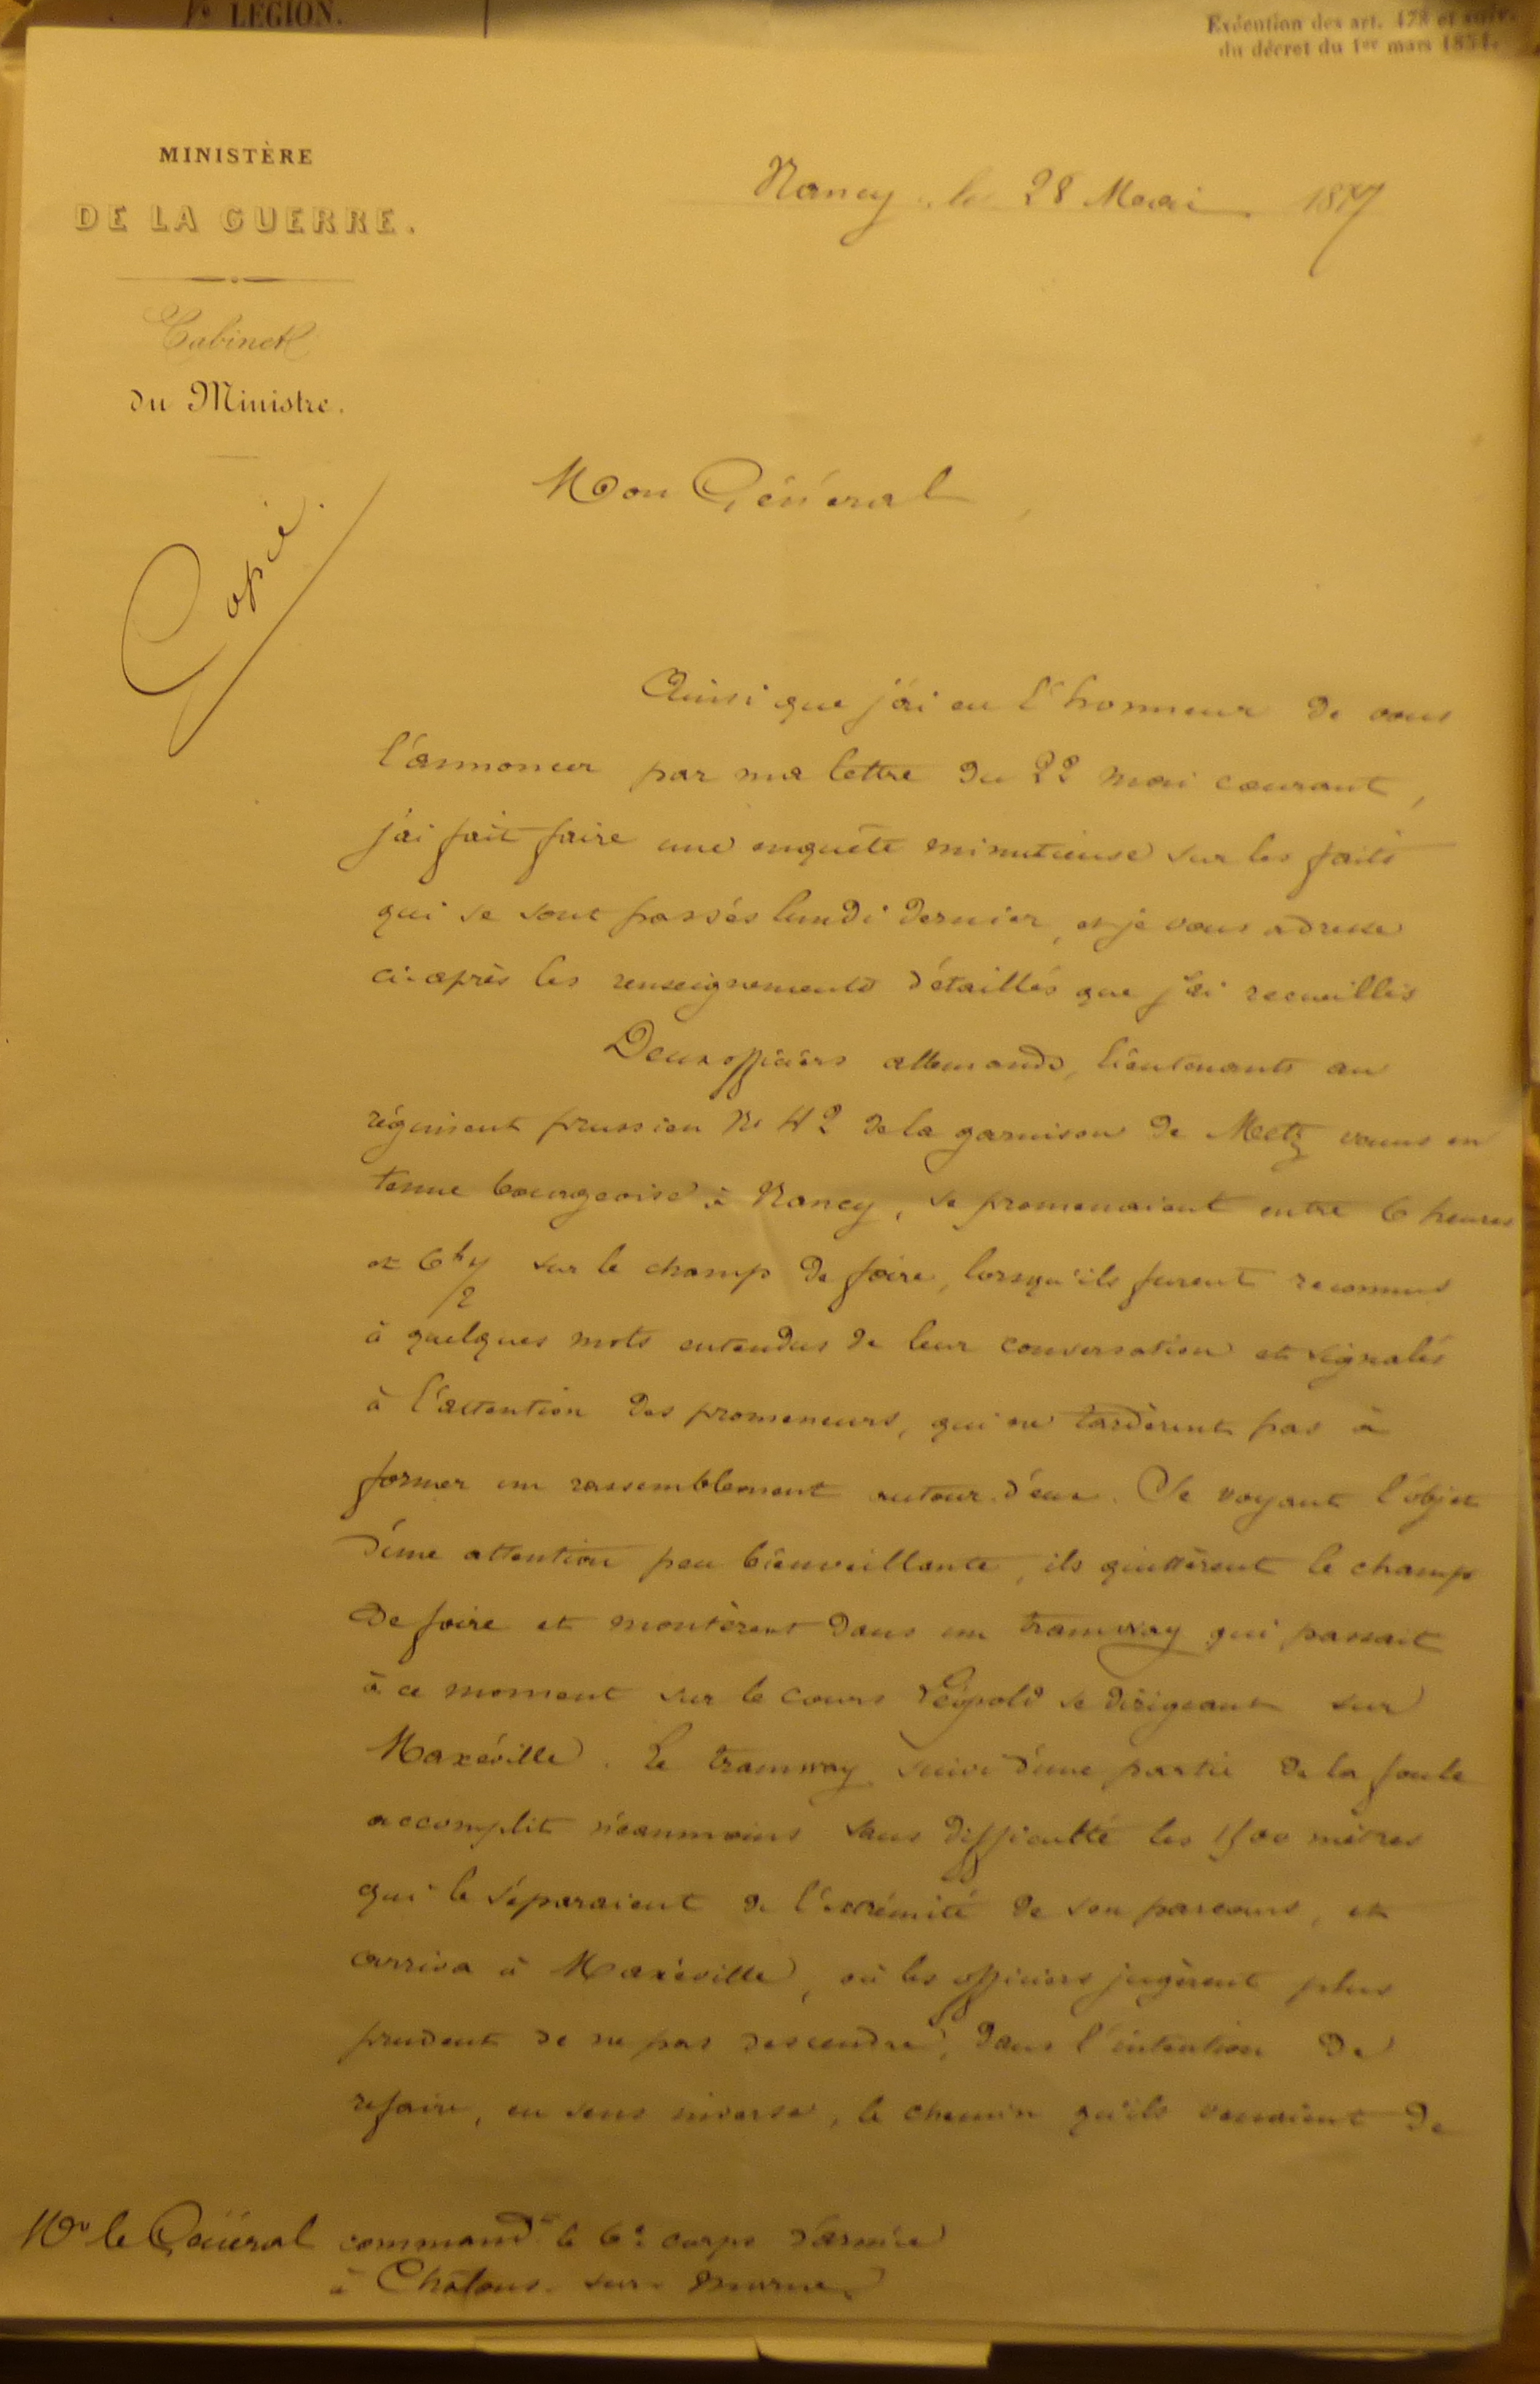 LEGION.
Exécution des art. 478 et suiv.
du décret du 1er mars 1854.
MINISTÈRE
DE LA GUERRE.
Cabinet
du Ministre.
Nancy le 28 Mai 18
Copie.
Mon Général,
Ainsi que j'ai eu l'honneur de vous
l'annoncer par ma lettre du 22 mai courant,
j'ai fait faire une enquête minutieuse sur les faits
qui se sont passés lundi dernier, et je vous adresse
ci-après les renseignements détaillés que j'ai recueillis
Deux officiers allemands, lieutenants au
régiment prussien No 42 de la garnison de Metz venus en
tenue bourgeoise à Nancy, se promenaient entre 6 heures
et 6h 1/2 sur le champ de foire, lorsqu'ils furent reconnus
à quelques mots entendus de leur conversation et signalés
à l'attention des promeneurs, qui ne tardèrent pas à
former un rassemblement autour d'eux. Se voyant l'objet
d'une attention peu bienveillante, ils quittèrent le champ
de foire et montèrent dans un tramway qui passait
à ce moment sur le cours Léopold se dirigeant sur
Maxéville. Le tramway suivi d'une partie de la foule
accomplit néanmoins sans difficulté les 1500 mètres
qui le séparaient de l'extrémité de son parcours, et
arriva à Maxéville, où les officiers jugèrent plus
prudent de ne pas descendre, dans l'intention de
refaire, en sens inverse, le chemin qu'ils venaient de
Mr le Général command. le 6e corps d'armée
à Châlons-sur-Marne.